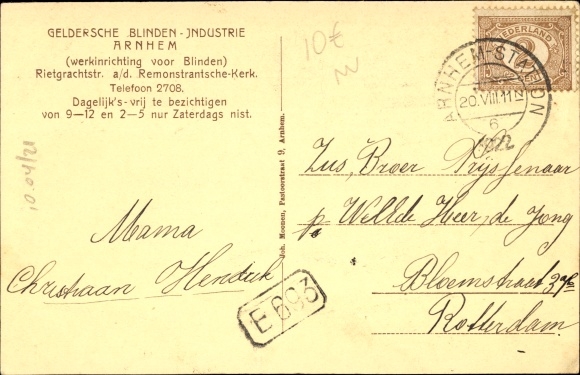 GELDERSCHE BLINDEN-JNDUSTRIE
ARNHEM
(werkinrichting voor Blinden)
Rietgrachtstr. a/d. Remonstrantsche-Kerk.
Telefoon 2708.
Dagelijk's-vrij te bezichtigen
van 9—12 en 2—5 nur Zaterdags nist.
10€
10.04/21
Mama
Christiaan Hendrik
E 693
Joh. Moonen, Pastoorstraat 9, Arnhem.
NEDERLAND
ARNHEM-STATION
20.VIII.11
6
Zus, Broer Prijsenaar
p/a Wellde Heer, de Jong
Bloemstraat
Rotterdam